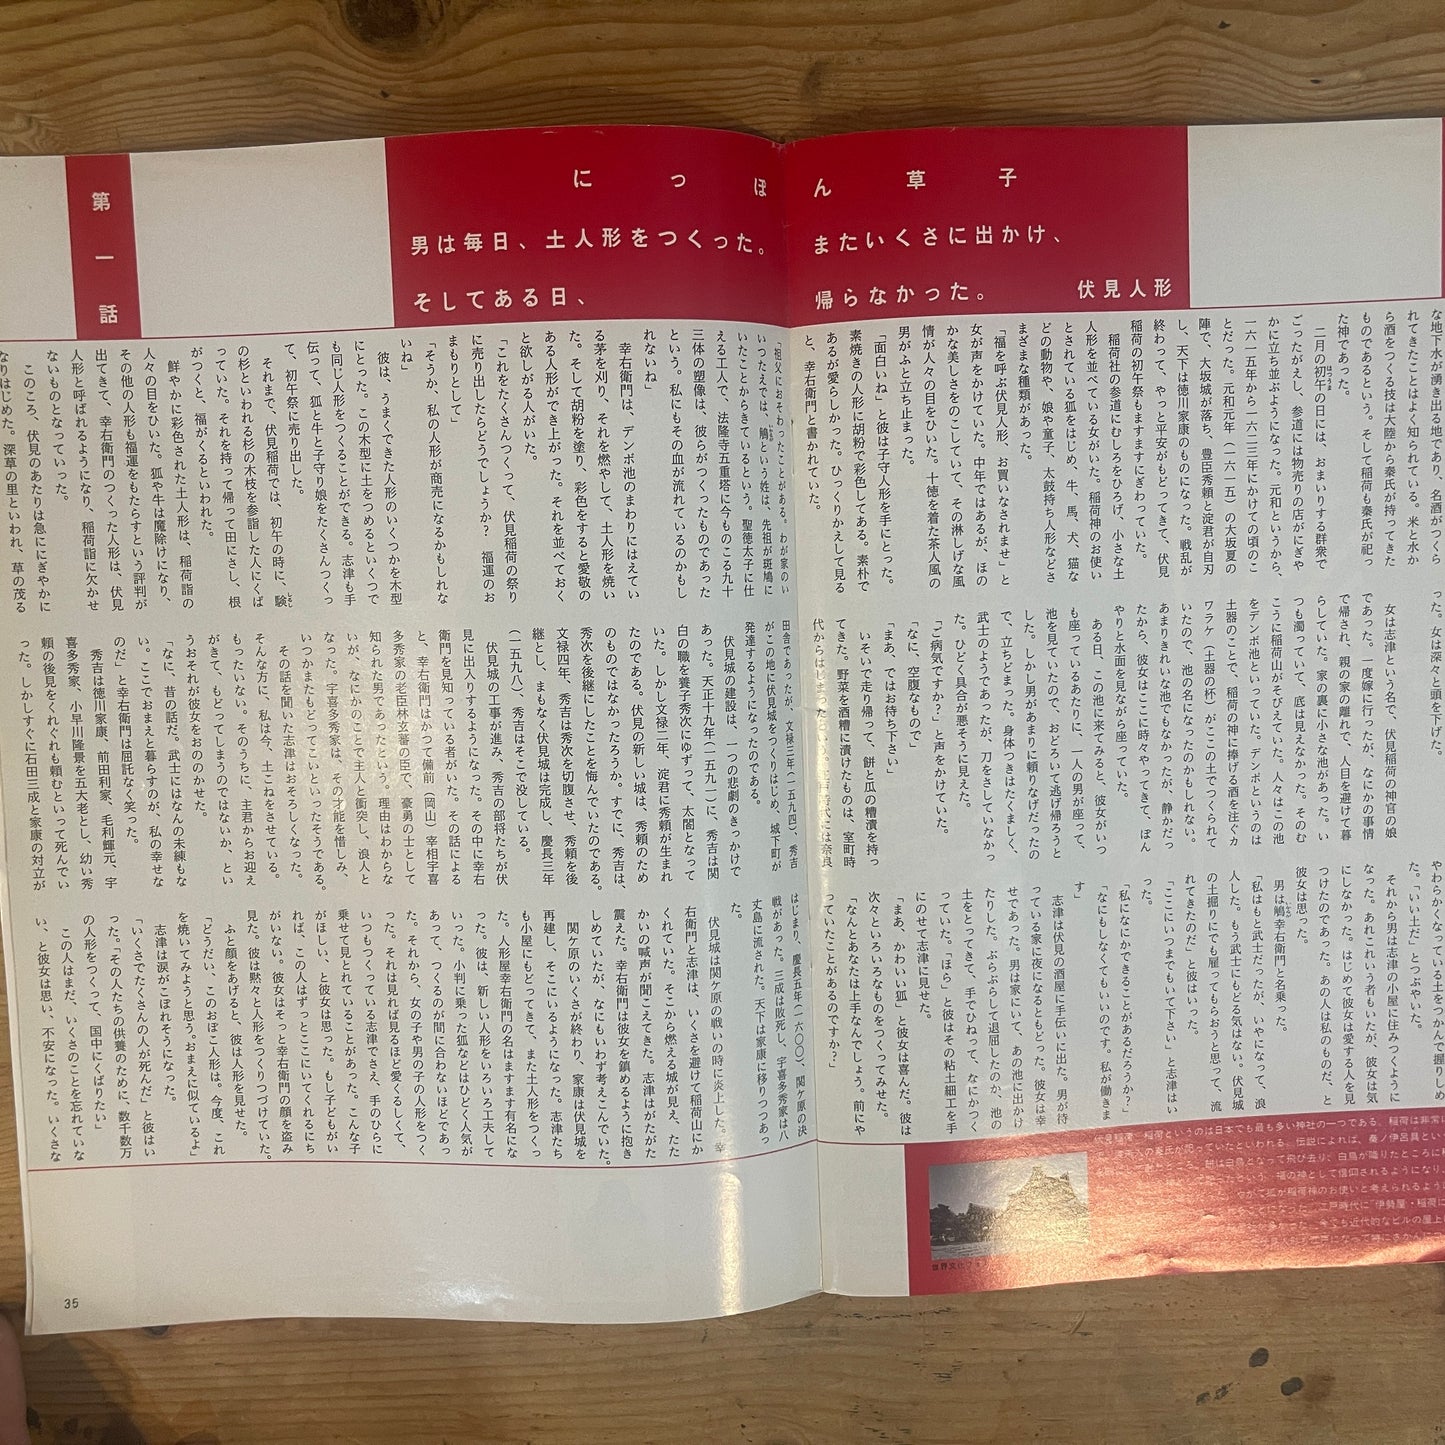 第一話
にっぽん草子
男は毎日、土人形をつくった。またいくさに出かけ、
そしてある日、帰らなかった。 伏見人形
な地下水が湧き出る地であり、名酒がつくら
れてきたことはよく知られている。米と水か
ら酒をつくる技は大陸から秦氏が持ってきた
ものであるという。そして稲荷も秦氏が祀っ
た神であった。
二月の初午の日には、おまいりする群衆で
ごったがえし、参道には物売りの店がにぎや
かに立ち並ぶようになった。元和というから、
一六一五年から一六二三年にかけての頃のこ
とだった。元和元年(一六一五)の大坂夏の
陣で、大坂城が落ち、豊臣秀頼と淀君が自刃
し、天下は徳川家康のものになった。戦乱が
終わって、やっと平安がもどってきて、伏見
稲荷の初午祭もますますにぎわっていた。
稲荷社の参道にむしろをひろげ、小さな土
人形を並べている女がいた。稲荷神のお使い
とされている狐をはじめ、牛、馬、犬、猫な
どの動物や、娘や童子、太鼓持ち人形などさ
まざまな種類があった。
「福を呼ぶ伏見人形、お買いなされませ」と
女が声をかけていた。中年ではあるが、ほの
かな美しさをのこしていて、その淋しげな風
情が人々の目をひいた。十徳を着た茶人風の
男がふと立ち止まった。
「面白いね」と彼は子守人形を手にとった。
素焼きの人形に胡粉で彩色してある。素朴で
あるが愛らしかった。ひっくりかえして見る
と、幸右衛門と書かれていた。
った。女は深々と頭を下げた。
女は志津という名で、伏見稲荷の神官の娘
であった。一度嫁に行ったが、なにかの事情
で帰され、親の家の離れで、人目を避けて暮
らしていた。家の裏に小さな池があった。い
つも濁っていて、底は見えなかった。そのむ
こうに稲荷山がそびえていた。人々はこの池
をデンボ池といっていた。デンボというのは
土器のことで、稲荷の神に捧げる酒を注ぐカ
ワラケ(土器の杯)がここの土でつくられて
いたので、池の名になったのかもしれない。
あまりきれいな池でもなかったが、静かだっ
たから、彼女はここに時々やってきて、ぼん
やりと水面を見ながら座っていた。
ある日、この池に来てみると、彼女がいつ
も座っているあたりに、一人の男が座って、
池を見ていたので、おどろいて逃げ帰ろうと
した。しかし男があまりに頼りなげだったの
で、立ちどまった。身体つきはたくましく、
武士のようであったが、刀をさしていなかっ
た。ひどく具合が悪そうに見えた。
「ご病気ですか?」と声をかけていた。
「なに、空腹なもので」
「まあ、ではお待ち下さい」
いそいで走り帰って、餅と瓜の糟漬を持っ
てきた。野菜を酒糟に漬けたものは、室町時
代からはじまったという。
やわらかくなっている土をつかんで握りしめ
た。「いい土だ」とつぶやいた。
それから男は志津の小屋に住みつくように
なった。あれこれいう者もいたが、彼女は気
にしなかった。はじめて彼女は愛する人を見
つけたのであった。あの人は私のものだ、と
彼女は思った。
男は鵤幸右衛門と名乗った。
「私はもと武士だったが、いやになって、浪
人した。もう武士にもどる気はない。伏見城
の土掘りにでも雇ってもらおうと思って、流
れてきたのだ」と彼はいった。
「ここにいつまでもいて下さい」と志津はい
った。
「私になにかできることがあるだろうか?」
「なにもしなくてもいいのです。私が働きま
す」
志津は伏見の酒屋に手伝いに出た。男が待
っている家に夜になるともどった。彼女は幸
せであった。男は家にいて、あの池に出かけ
たりした。ぶらぶらして退屈したのか、池の
土をとってきて、手でひねって、なにかつく
っていた。「ほら」と彼はその粘土細工を手
にのせて志津に見せた。
「まあ、かわいい狐」と彼女は喜んだ。彼は
次々といろいろなものをつくってみせた。
「なんとあなたは上手なんでしょう。前にや
っていたことがあるのですか?」
「祖父におそわったことがある。わが家のい
いつたえでは、鵤という姓は、先祖が斑鳩に
いたことからきているという。聖徳太子に仕
える工人で、法隆寺五重塔に今ものこる九十
三体の塑像は、彼らがつくったものであった
という。私にもその血が流れているのかもし
れないね」
幸右衛門は、デンボ池のまわりにはえてい
る茅を刈り、それを燃やして、土人形を焼い
た。そして胡粉を塗り、彩色をすると愛敬の
ある人形ができ上がった。それを並べておく
と欲しがる人がいた。
「これをたくさんつくって、伏見稲荷の祭り
に売り出したらどうでしょうか? 福運のお
まもりとして」
「そうか、私の人形が商売になるかもしれな
いね」
彼は、うまくできた人形のいくつかを木型
にとった。この木型に土をつめるといくつで
も同じ人形をつくることができる。志津も手
伝って、狐と牛と子守り娘をたくさんつくっ
て、初午祭に売り出した。
それまで、伏見稲荷では、初午の時に、験
の杉といわれる杉の木枝を参詣した人にくば
っていた。それを持って帰って田にさし、根
がつくと、福がくるといわれた。
鮮やかに彩色された土人形は、稲荷詣の
人々の目をひいた。狐や牛は魔除けになり、
その他の人形も福運をもたらすという評判が
出てきて、幸右衛門のつくった人形は、伏見
人形と呼ばれるようになり、稲荷詣に欠かせ
ないものとなっていった。
このころ、伏見のあたりは急ににぎやかに
なりはじめた。深草の里といわれ、草の茂る
田舎であったが、文禄三年(一五九四)、秀吉
がこの地に伏見城をつくりはじめ、城下町が
発達するようになったのである。
伏見城の建設は、一つの悲劇のきっかけで
あった。天正十九年(一五九一)に、秀吉は関
白の職を養子秀次にゆずって、太閤となって
いた。しかし文禄二年、淀君に秀頼が生まれ
たのである。伏見の新しい城は、秀頼のため
のものではなかったろうか。すでに、秀吉は、
秀次を後継にしたことを悔んでいたのである。
文禄四年、秀吉は秀次を切腹させ、秀頼を後
継とし、まもなく伏見城は完成し、慶長三年
(一五九八)、秀吉はそこで没している。
伏見城の工事が進み、秀吉の部将たちが伏
見に出入りするようになった。その中に幸右
衛門を見知っている者がいた。その話による
と、幸右衛門はかつて備前(岡山)宰相宇喜
多秀家の老臣林玄蕃の臣で、豪勇の士として
知られた男であったという。理由はわからな
いが、なにかのことで主人と衝突し、浪人と
なった。宇喜多秀家は、その才能を惜しみ、
いつかまたもどってこいといったそうである。
その話を聞いた志津はおそろしくなった。
そんな方に、私は今、土こねをさせている。
もったいない。そのうちに、主君からお迎え
がきて、もどってしまうのではないか、とい
うおそれが彼女をおののかせた。
「なに、昔の話だ。武士にはなんの未練もな
い。ここでおまえと暮らすのが、私の幸せな
のだ」と幸右衛門は屈託なく笑った。
秀吉は徳川家康、前田利家、毛利輝元、宇
喜多秀家、小早川隆景を五大老とし、幼い秀
頼の後見をくれぐれも頼むといって死んでい
った。しかしすぐに石田三成と家康の対立が
はじまり、慶長五年(一六〇〇)、関ケ原の決
戦があった。三成は敗死し、宇喜多秀家は八
丈島に流された。天下は家康に移りつつあっ
た。
伏見城は関ケ原の戦いの時に炎上した。幸
右衛門と志津は、いくさを避けて稲荷山にか
くれていた。そこから燃える城が見え、たた
かいの喚声が聞こえてきた。志津はがたがた
震えた。幸右衛門は彼女を鎮めるように抱き
しめていたが、なにもいわず考えこんでいた。
関ケ原のいくさが終わり、家康は伏見城を
再建し、そこにいるようになった。志津たち
も小屋にもどってきて、また土人形をつくっ
た。人形屋幸右衛門の名はますます有名にな
った。彼は、新しい人形をいろいろ工夫して
いった。小判に乗った狐などはひどく人気が
あって、つくるのが間に合わないほどであっ
た。それから、女の子や男の子の人形をつく
った。それは見れば見るほど愛くるしくて、
いつもつくっている志津でさえ、手のひらに
乗せて見とれていることがあった。こんな子
がほしい、と彼女は思った。もし子どもがい
れば、この人はずっとここにいてくれるにち
がいない。彼女はそっと幸右衛門の顔を盗み
見た。彼は黙々と人形をつくりつづけていた。
ふと顔をあげると、彼は人形を見せた。
「どうだい、このおぼこ人形は。今度、これ
を焼いてみようと思う。おまえに似ているよ」
志津は涙がこぼれそうになった。
「いくさでたくさんの人が死んだ」と彼はい
った。「その人たちの供養のために、数千数万
の人形をつくって、国中にくばりたい」
この人はまだ、いくさのことを忘れていな
い、と彼女は思い、不安になった。いくさな
伏見稲荷 稲荷というのは日本でも最も多い神社の一つである。稲荷は非常に
世界文化フォト
35